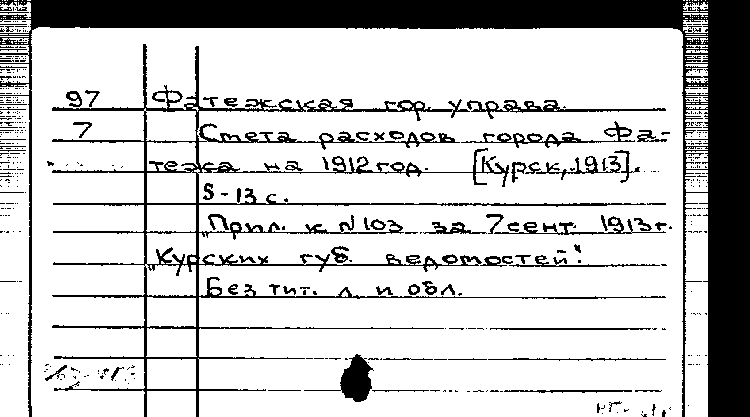 97 Фатежская гор. управа
7 Смета расходов города Фа-
тежа на 1912 год. [Курск, 1913].
8-13 с.
„Прил. к N 103 за 7 сент. 1913 г.
„Курских губ. ведомостей".
Без тит. л. и обл.